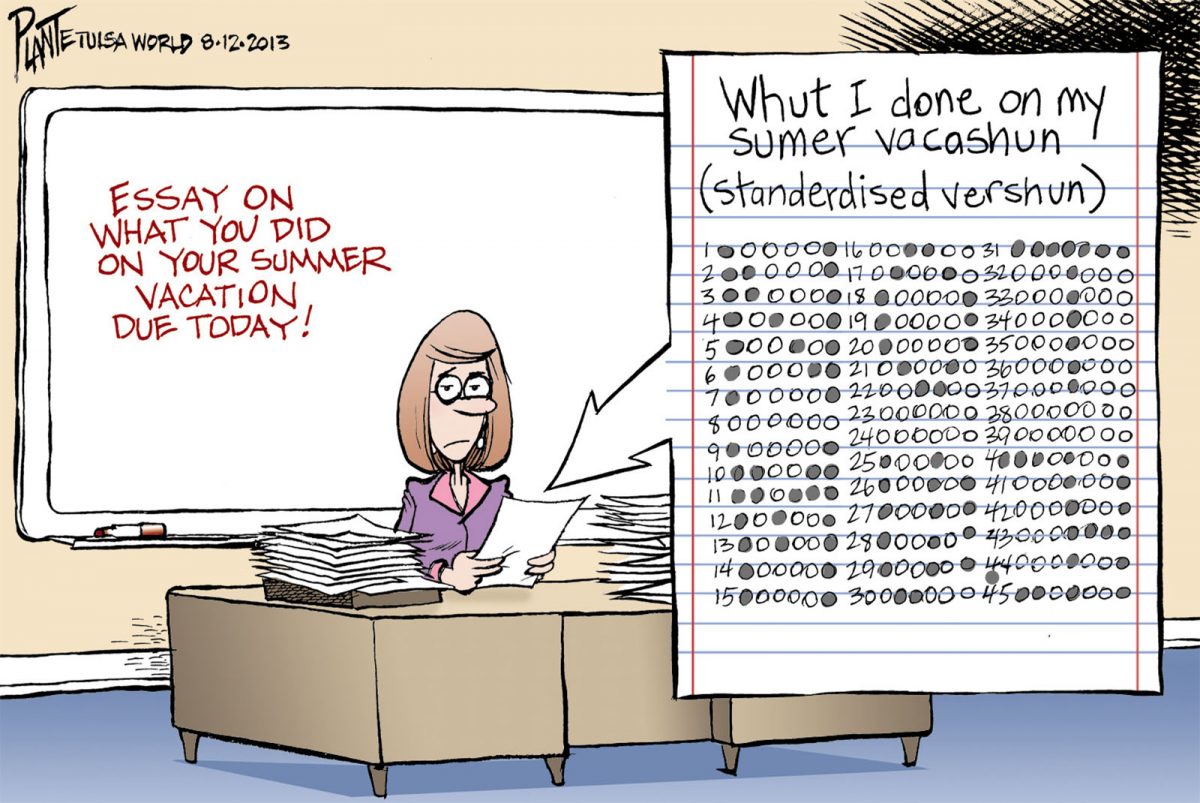 PLANTE TULSA WORLD 8-12-2013
ESSAY ON
WHAT YOU DID
ON YOUR SUMMER
VACATION
DUE TODAY!
Whut I done on my
sumer vacashun
(standerdised vershun)
1 16 31
2 17 32
3 18 33
4 19 34
5 20 35
6 21 36
7 22 37
8 23 38
9 24 39
10 25 40
11 26 41
12 27 42
13 28 43
14 29 44
15 30 45